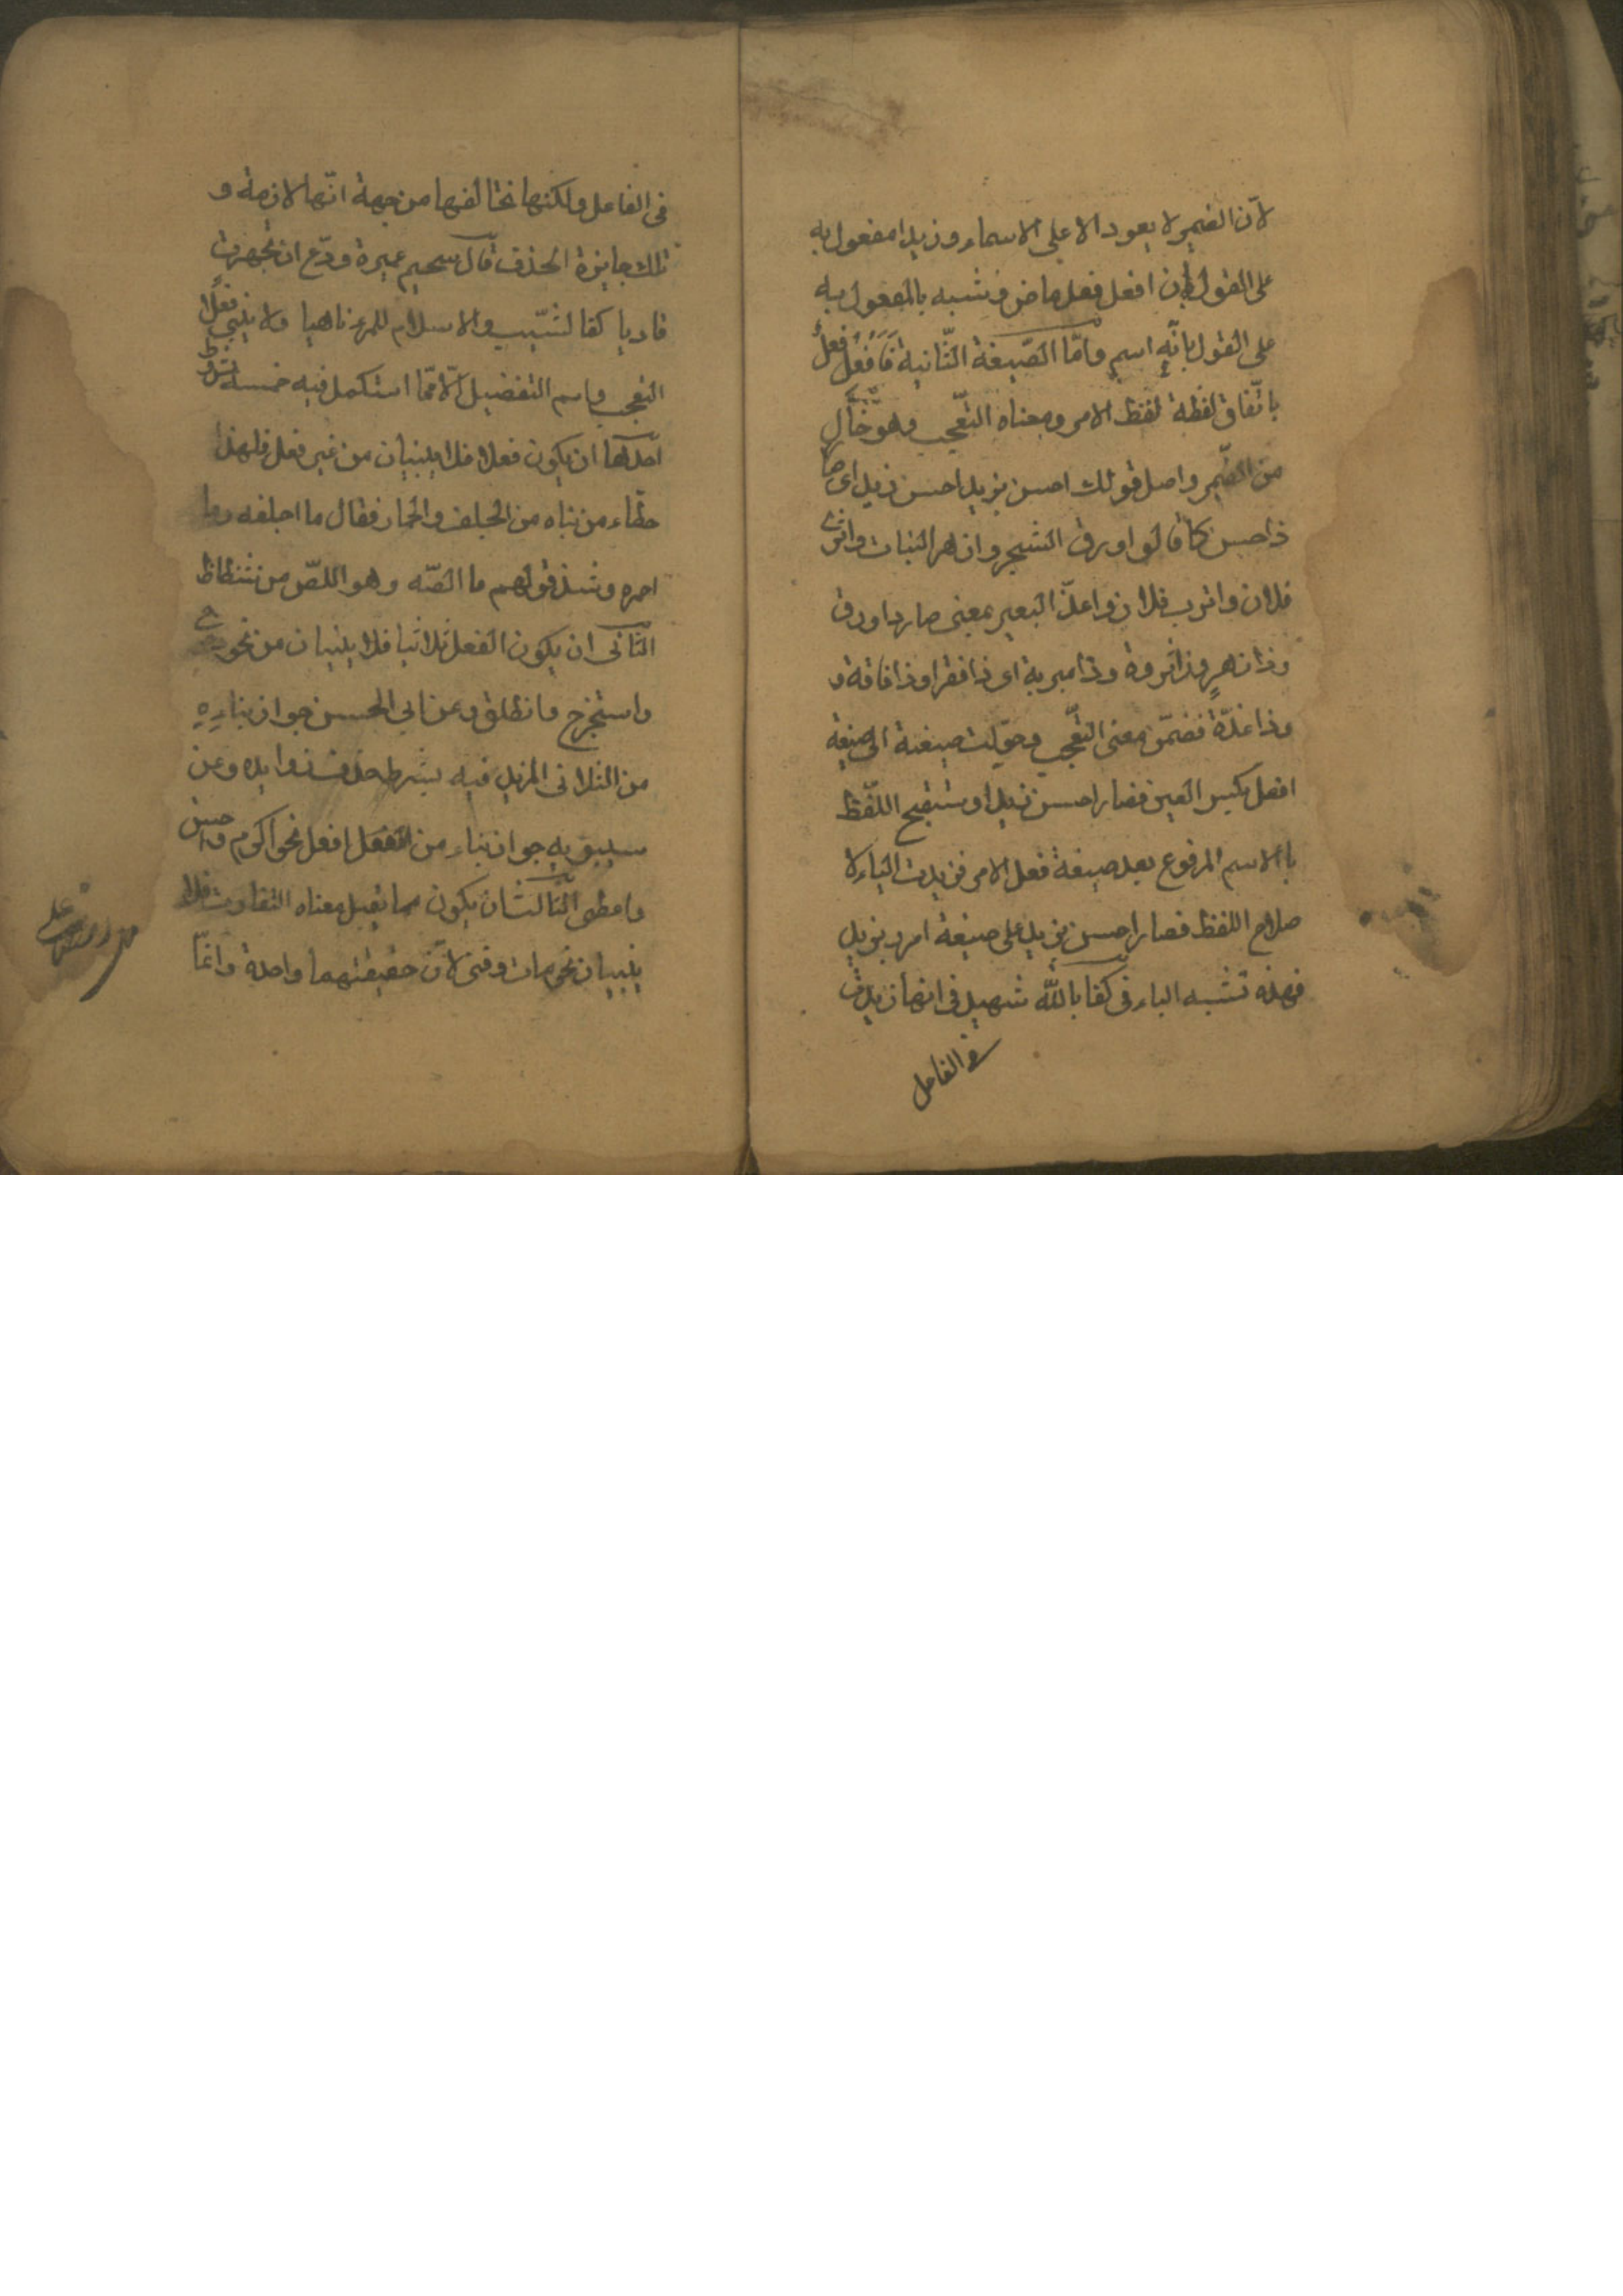 لانّ الضمير لا يعود الا على الاسماء وزيدا مفعول به
على القول بان افعل فعل ماض ومشبه بالمفعول به
على القول بانّه اسم وامّا الصّيغة الثّانية فافعل فعل
باتّفاق لفظه لفظ الامر ومعناه التّعجب وهو خال
من الضّمير واصل قولك احسن بزيد احسن زيد اى صا
ذا حسن كما قالوا اورق الشجر وازهر النبات واثرى
فلان واترب فلان واغدّ البعير بمعنى صار ذا ورق
وذا زهر وذا ثروة وذا متربة اى ذا فقر او ذا فاقة و
وذا غدّة فضمّن معنى التّعجب وحوّلت صيغة الى صيغة
افعل بكسر العين فصار احسن زيد او ستقبح اللّفظ
بالاسم المرفوع بعد صيغة فعل الامر فزيدت الباء لا
صلاح اللفظ فصار احسن بزيد على صيغة امرر بزيد
فهذه تشبه الباء فى كفا بالله شهيد فى انها زيدت
فى الفاعل
فى الفاعل ولكنها تخالفها من جهة انّها لازمة و
تلك جايزة الحذف قال سحيم عميرة ودّع ان تجهزت
غاديا كفا لشّيب والاسلام للمرء ناهيا ولا يبنى فعلا
التعجب واسم التفضيل الّا ممّا استكمل فيه خمسة شروط
احدها ان يكون فعلا فلا يبنيان من غير فعل فلهذا
خطاء من بناه من الجلف والحمار فقال ما اجلفه وما
احمره وشذ قولهم ما الصّه وهو اللصّ من شظاظ
الثانى ان يكون الفعل ثلاثيا فلا يبنيان من نحو دحرج
واستخرج وانطلق وعن ابى الحسن جواز بناءه
من الثلاثى المزيد فيه بشرط حذف زوايده وعن
سيبويه جواز بناء من افعل نحو اكرم واحسن
واعطى الثّالث ان يكون مما يقبل معناه التفاوت فلا
يبنيان نحو مات وفنى لانّ حقيقتهما واحدة وانمّا